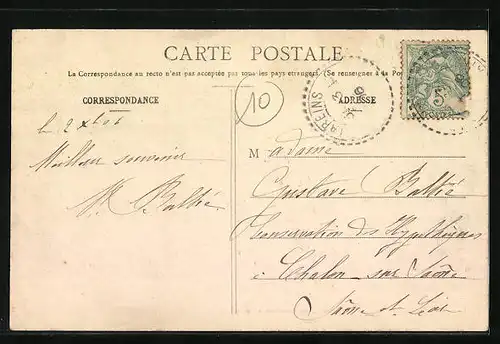 CARTE POSTALE
La Correspondance au recto n'est pas acceptée par tous les pays étrangers. (Se renseignes à la Po
CORRESPONDANCE
ADRESSE
10
Meilleur souvenir
Madame
Gustave
Conservation des Hypothèques
à Chalon sur Saône
Saône et Loire
5